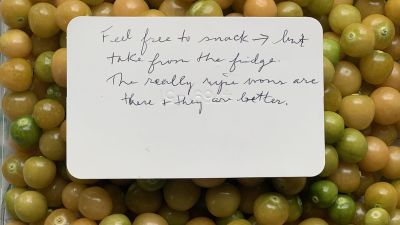 Feel free to snack → but
take from the fridge.
The really ripe wons are
there + they are better.